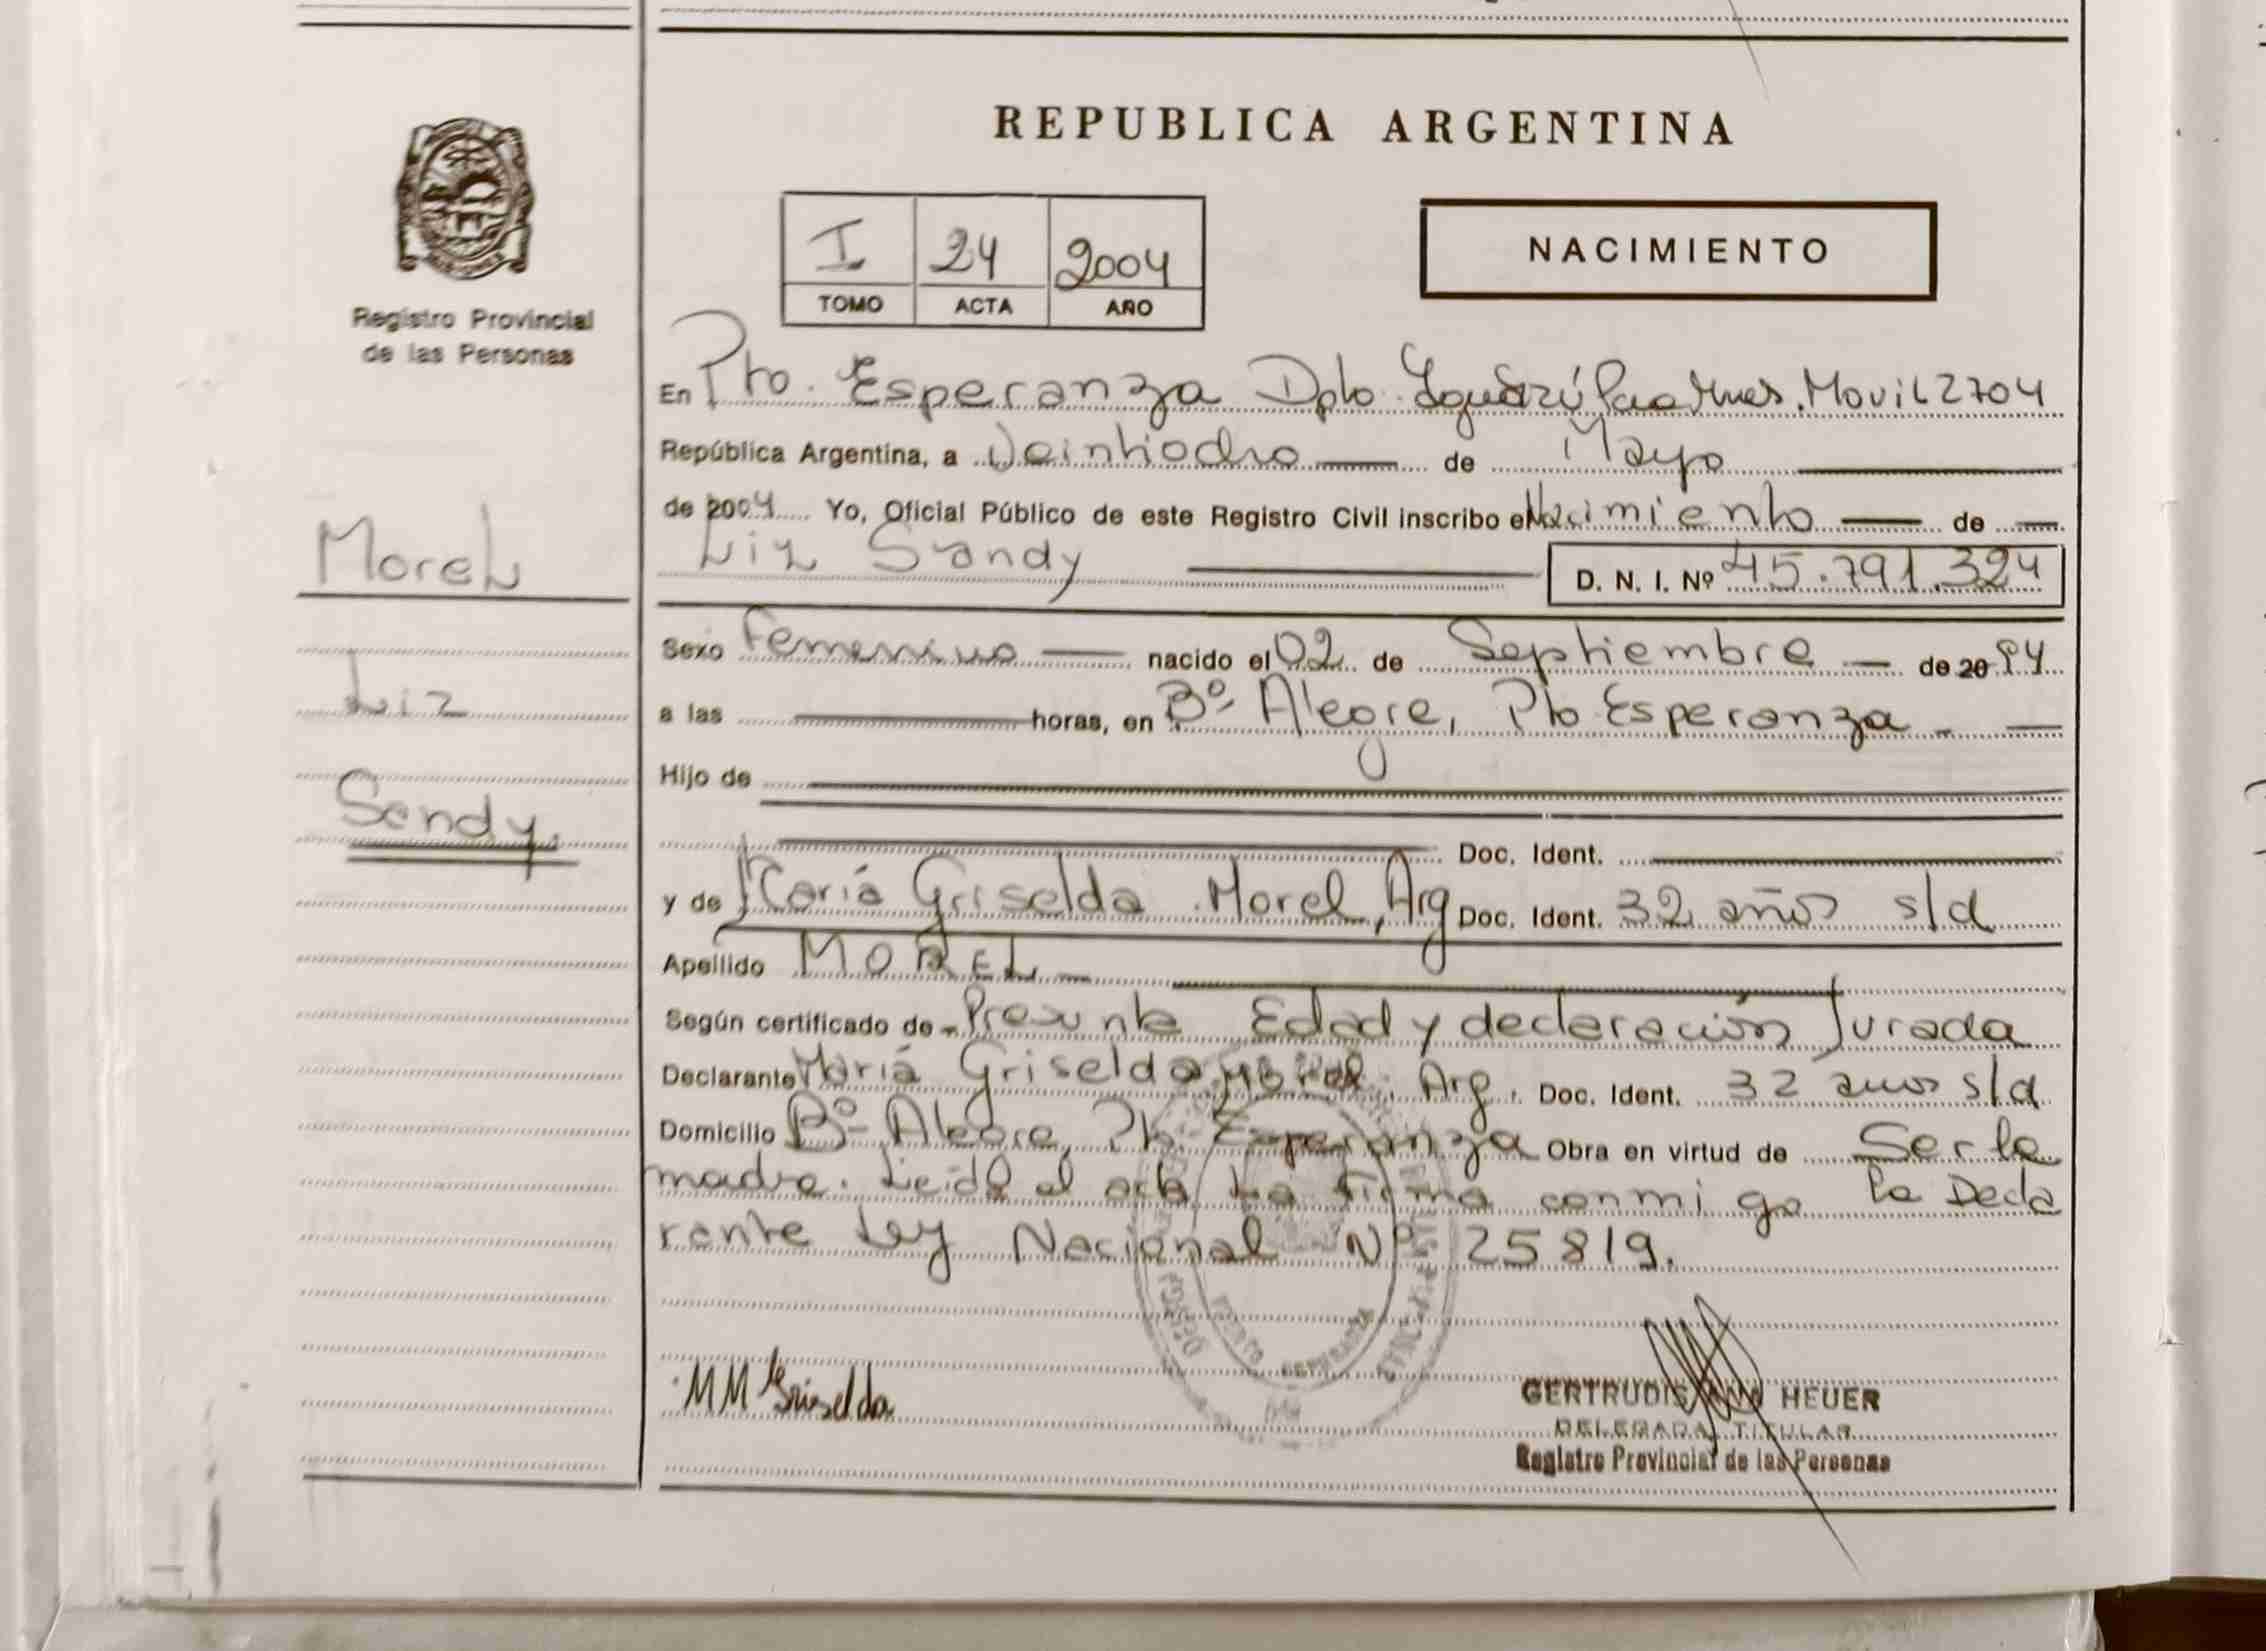 REPUBLICA ARGENTINA
I 24 2004
TOMO ACTA AÑO
NACIMIENTO
Registro Provincial
de las Personas
Morel
Liz
Sandy.
En Pto. Esperanza Dpto. Iguazú Movil 2704
República Argentina, a Veintiocho de Mayo
de 2004 Yo, Oficial Público de este Registro Civil inscribo el Nacimiento de
Liz Sandy D. N. I. Nº 45.791.324
Sexo Femenino nacido el 02 de Septiembre de 20 94
a las horas, en Bº Alegre, Pto Esperanza
Hijo de
Doc. Ident.
y de María Griselda Morel, Arg Doc. Ident. 32 años s/d
Apellido MOREL
Según certificado de Presunta Edad y declaración Jurada
Declarante María Griselda Morel. Arg. Doc. Ident. 32 años s/d
Domicilio Bº Alegre, Pto Esperanza Obra en virtud de Ser la
madre. Leida el acta La firma conmigo la Decla
rante Ley Nacional Nº 25819.
MM Griselda
PUERTO ESPERANZA
GERTRUDIS ANA HEUER
DELEGADA TITULAR
Registro Provincial de las Personas